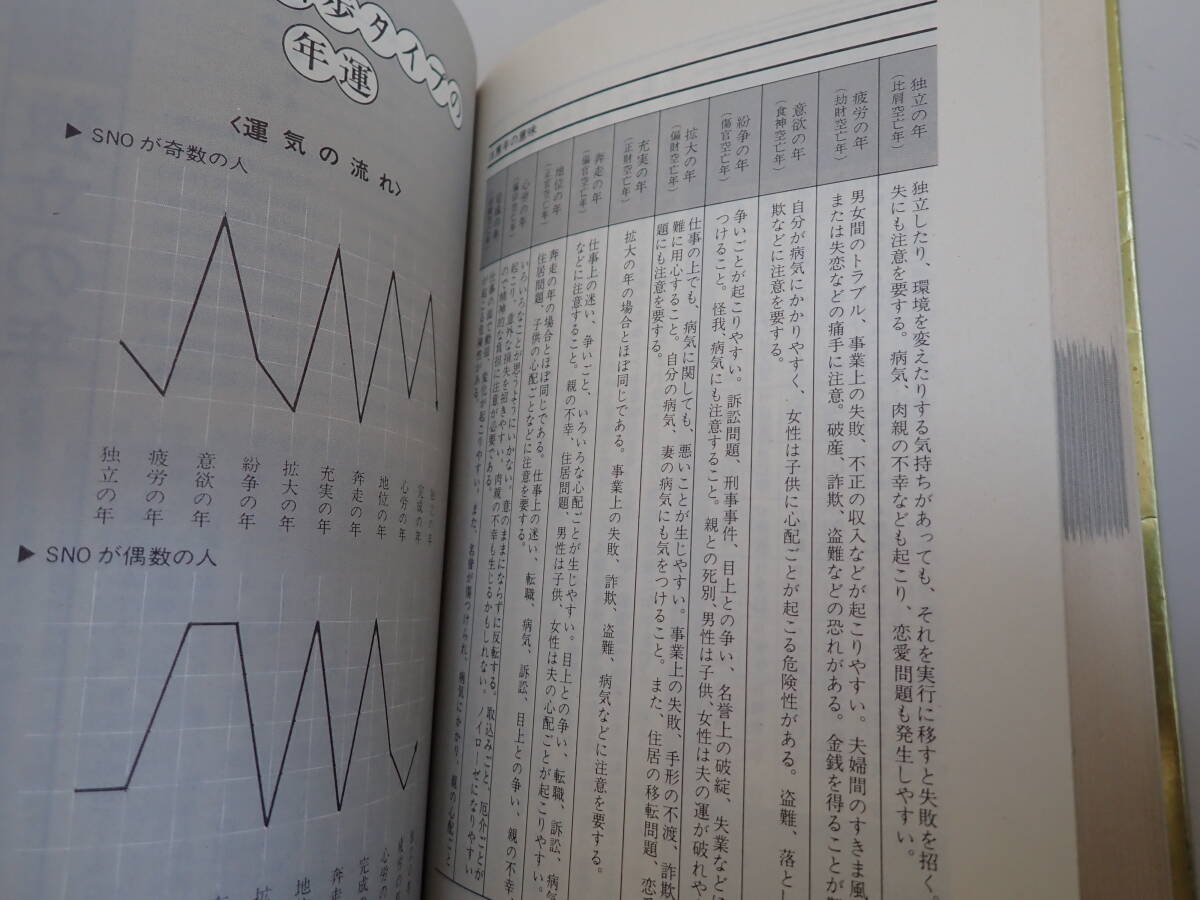 歩タイプの
年運
〈運気の流れ〉
▶SNOが奇数の人
独立の年
疲労の年
意欲の年
紛争の年
拡大の年
充実の年
奔走の年
地位の年
心労の年
完成の年
独立の年
▶SNOが偶数の人
拡
奔走
完成の
心労の
疲労の
独立の年
(比肩空亡年)
独立したり、環境を変えたりする気持ちがあっても、それを実行に移すと失敗を招く。
失にも注意を要する。病気、肉親の不幸なども起こり、恋愛問題も発生しやすい。
疲労の年
(劫財空亡年)
男女間のトラブル、事業上の失敗、不正の収入などが起こりやすい。夫婦間のすきま風
または失恋などの痛手に注意。破産、詐欺、盗難などの恐れがある。金銭を得ることが
意欲の年
(食神空亡年)
自分が病気にかかりやすく、女性は子供に心配ごとが起こる危険性がある。盗難、落とし
欺などに注意を要する。
紛争の年
(傷官空亡年)
争いごとが起こりやすい。訴訟問題、刑事事件、目上との争い、名誉上の破綻、失業などに
つけること。怪我、病気にも注意すること。親との死別、男性は子供、女性は夫の運が破れや
拡大の年
(偏財空亡年)
仕事の上でも、病気に関しても、悪いことが生じやすい。事業上の失敗、手形の不渡、詐欺
難に用心すること。自分の病気、妻の病気にも気をつけること。また、住居の移転問題、恋
題にも注意を要する。
充実の年
(正財空亡年)
拡大の年の場合とほぼ同じである。事業上の失敗、詐欺、盗難、病気などに注意を要する。
奔走の年
(偏官空亡年)
仕事上の迷い、争いごと、いろいろな心配ごとが生じやすい。目上との争い、転職、訴訟、病気
などに注意すること。親の不幸、住居問題、男性は子供、女性は夫の心配ごとが起こりやすい。
地位の年
(正官空亡年)
奔走の年の場合とほぼ同じである。仕事上の迷い、転職、病気、訴訟、目上との争い、親の不幸、
住居問題、子供の心配ごとなどに注意を要する。
心労の年
(偏印空亡年)
いろいろなことが思うようにいかない。意のままにならずに反転する。取込みごと、厄介ごとが
起こり、意外な損失を招きやすい。肉親の不幸も生じるかもしれない。ノイローゼになりやすい
ので精神的な負担に注意が必要である。